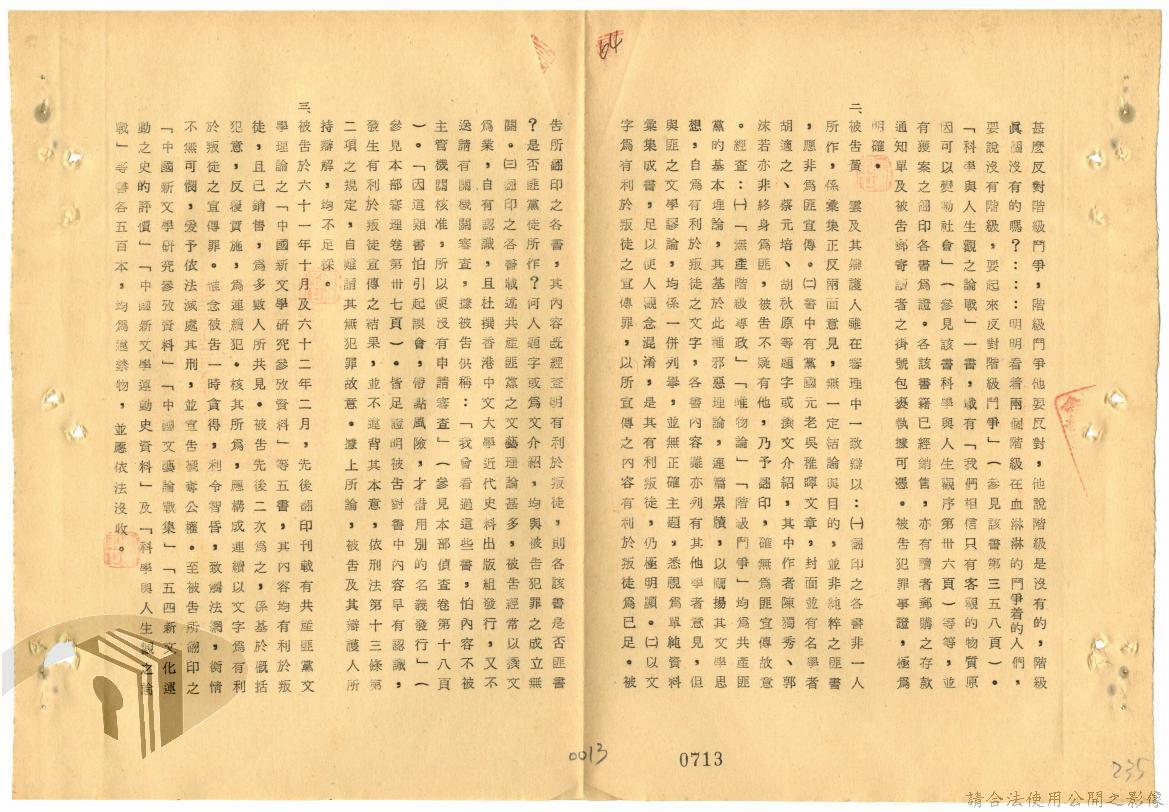 甚麽反對階級鬥爭，階級鬥爭他要反對，他說階級是沒有的，階級
眞個沒有的嗎？：：：明明看着兩個階級在血淋淋的鬥爭着的人們，
要說沒有階級，要起來反對階級鬥爭」（參見該書第三五八頁）。
「科學與人生觀之論戰」一書，載有「我們相信只有客觀的物質原
因可以變動社會」（參見該書科學與人生觀序第卅六頁）等等，並
有獲案之翻印各書爲證。各該書籍已經銷售，亦有讀者郵購之存款
通知單及被告郵寄讀者之掛號包裹執據可憑。被告犯罪事證，極爲
明確。
二、被告黃　雲及其辯護人雖在審理中一致辯以：㈠翻印之各書非一人
所作，係彙集正反兩面意見，無一定結論與目的，並非純粹之匪書
，應非爲匪宣傳。㈡書中有黨國元老吳稚暉文章，封面並有名學者
胡適之、蔡元培、胡秋原等題字或撰文介紹，其中作者陳獨秀、郭
沫若亦非終身爲匪，被告不疑有他，乃予翻印，確無爲匪宣傳故意
。經查：㈠「無產階級專政」「唯物論」「階級鬥爭」均爲共產匪
黨的基本理論，其基於此種邪惡理論，連篇累牘，以闡揚其文學思
想，自爲有利於叛徒之文字，各書內容雖亦列有其他學者意見，但
與匪之文學謬論，均係一併列舉，並無正確主題，悉視爲單純資料
彙集成書，足以使人觀念混淆，是其有利叛徒，仍極明顯。㈡以文
字爲有利於叛徒之宣傳罪，以所宣傳之內容有利於叛徒爲已足。被
告所翻印之各書，其內容既經查明有利於叛徒，則各該書是否匪書
？是否匪黨徒所作？何人題字或爲文介紹，均與被告犯罪之成立無
關。㈢翻印之各書載述共產匪黨之文藝理論甚多，被告經常以撰文
爲業，自有認識，且杜撰香港中文大學近代史料出版組發行，又不
送請有關機關審查，據被告供稱：「我曾看過這些書，怕內容不被
主管機關核准，所以便沒有申請審查」（參見本部偵查卷第十八頁
）。「因這類書怕引起誤會，帶點風險，才借用別的名義發行」（
參見本部審理卷第卅七頁）。皆足證明被告對書中內容早有認識，
發生有利於叛徒宣傳之結果，並不違背其本意，依刑法第十三條第
二項之規定，自難謂其無犯罪故意。據上所論，被告及其辯護人所
持辯解，均不足採。
三、被告於六十一年十月及六十二年二月，先後翻印刊載有共產匪黨文
學理論之「中國新文學研究參攷資料」等五書，其內容均有利於叛
徒，且已銷售，爲多數人所共見。被告先後二次爲之，係基於概括
犯意，反覆實施，爲連續犯。核其所爲，應構成連續以文字爲有利
於叛徒之宣傳罪。惟念被告一時貪得，利令智昏，致觸法網，衡情
不無可憫，爰予依法減處其刑，並宣告褫奪公權。至被告所翻印之
「中國新文學研究參攷資料」「中國文藝論戰集」「五四新文化運
動之史的評價」「中國新文學運動史資料」及「科學與人生觀之論
戰」等書各五百本，均爲違禁物，並應依法沒收。
64
0013
0713
235
請合法使用公開之影像